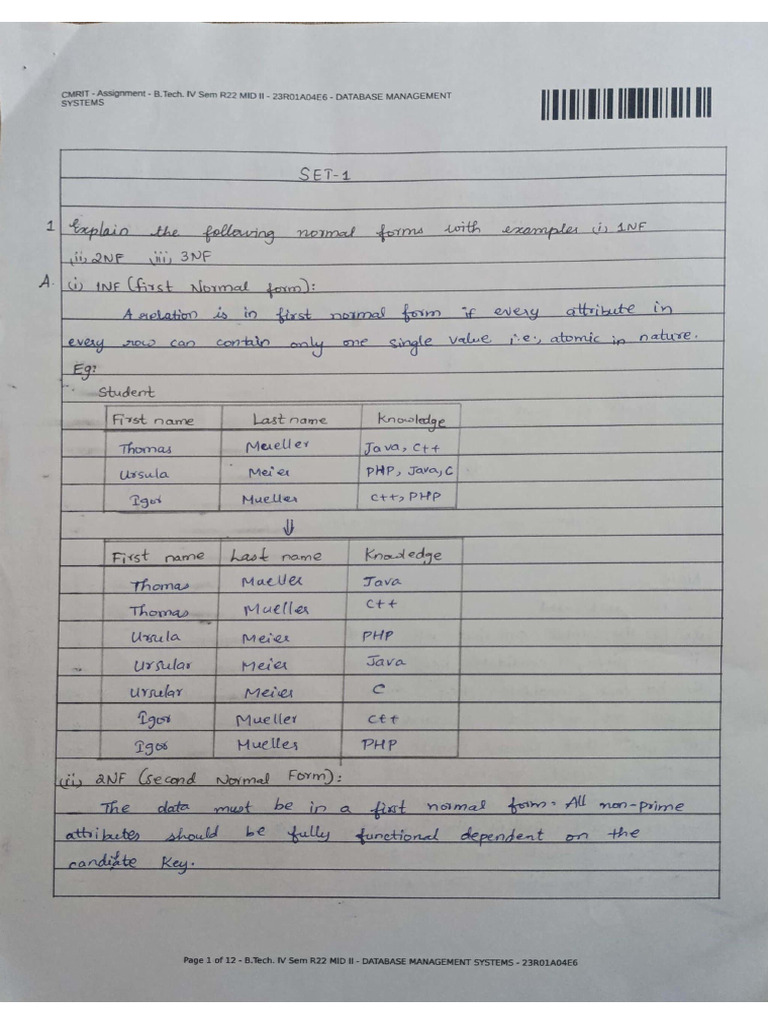 CMRIT - Assignment - B.Tech. IV Sem R22 MID II - 23R01A04E6 - DATABASE MANAGEMENT
SYSTEMS
SET-1
1 Explain the following normal forms with examples (i) 1NF
(ii) 2NF (iii) 3NF
A. (i) 1NF (First Normal form):
A relation is in first normal form if every attribute in
every row can contain only one single value i.e., atomic in nature.
Eg:
Student
First name Last name Knowledge
Thomas Mueller Java, C++
Ursula Meier PHP, Java, C
Igor Mueller C++, PHP
⇓
First name Last name Knowledge
Thomas Mueller Java
Thomas Mueller C++
Ursula Meier PHP
Ursular Meier Java
Ursular Meier C
Igor Mueller C++
Igor Mueller PHP
(ii) 2NF (Second Normal Form):
The data must be in a first normal form. All non-prime
attributes should be fully functional dependent on the
candidate Key.
Page 1 of 12 - B.Tech. IV Sem R22 MID II - DATABASE MANAGEMENT SYSTEMS - 23R01A04E6